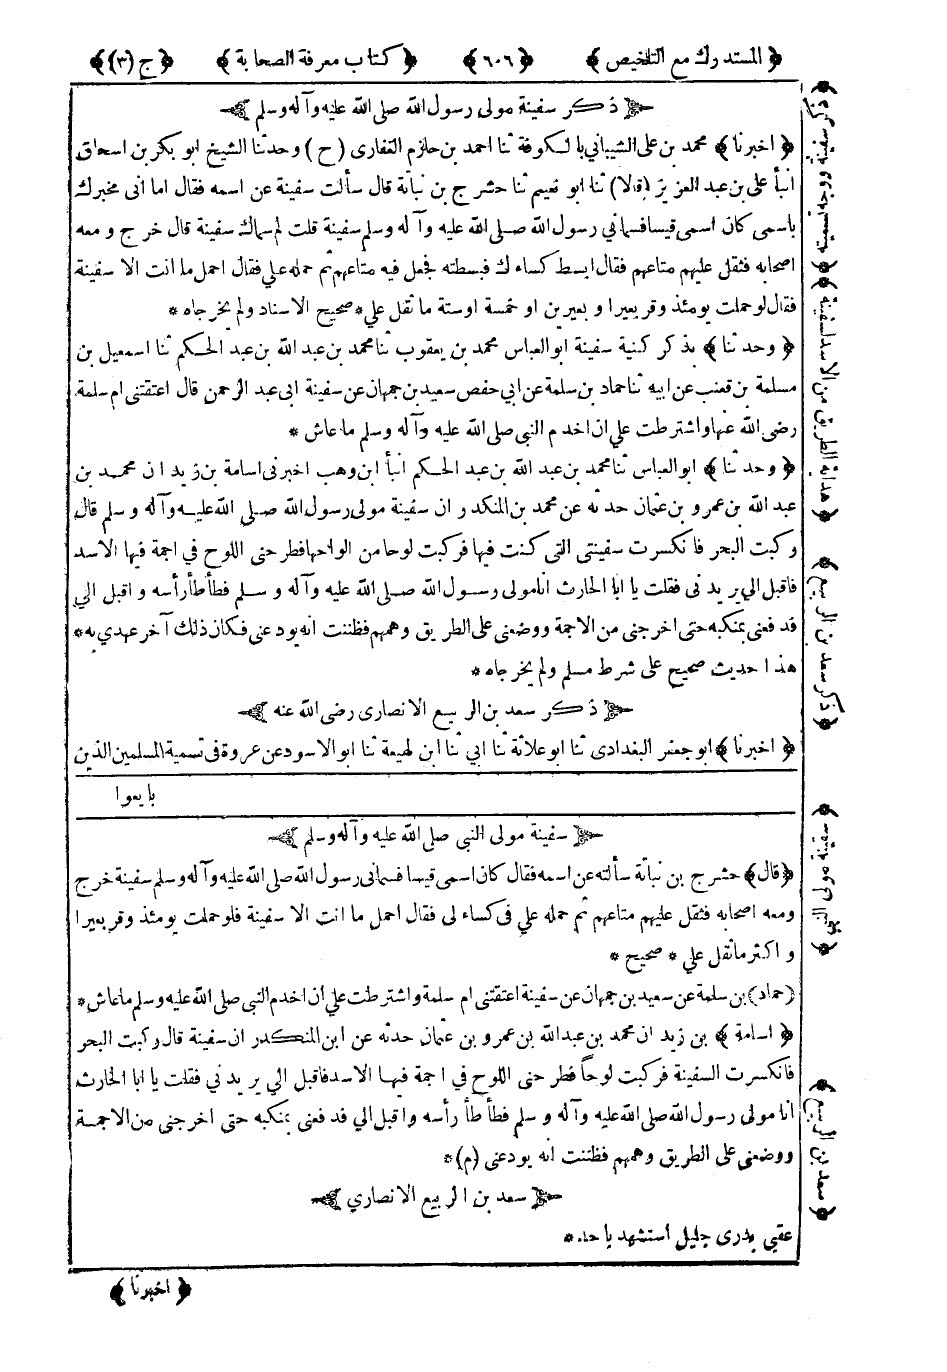 ﴿ المستدرك مع التلخيص ﴾ ﴿ ٦٠٦ ﴾ ﴿ كتاب معرفة الصحابة ﴾ ﴿ ج (٣) ﴾
ذكر سفينة مولى رسول الله صلى الله عليه وآله وسلم
﴿ اخبرنا ﴾ محمد بن على الشيبانى بالكوفة ثنا احمد بن حازم الغفارى ( ح ) وحدثنا الشيخ ابو بكر بن اسحاق
انبأ على بن عبد العزيز (قالا) ثنا ابو نعيم ثنا حشرج بن نباتة قال سألت سفينة عن اسمه فقال اما انى مخبرك
باسمى كان اسمى قيسا فسمانى رسول الله صلى الله عليه وآله وسلم سفينة قلت لم سماك سفينة قال خرج و معه
اصحابه فثقل عليهم متاعهم فقال ابسط كساءك فبسطته فجعل فيه متاعهم ثم حمله علي فقال احمل ما انت الا سفينة
فقال لو حملت يومئذ وقر بعيرا و بعيرين او خمسة اوستة ما ثقل علي * صحيح الاسناد ولم يخرجاه *
﴿ وحدثنا ﴾ بذكر كنية سفينة ابو العباس محمد بن يعقوب ثنا محمد بن عبد الله بن عبد الحكم ثنا اسمعيل بن
مسلمة بن قعنب عن ابيه ثنا حماد بن سلمة عن ابي حفص سعيد بن جمهان عن سفينة ابى عبد الرحمن قال اعتقتنى ام سلمة
رضى الله عنها واشترطت علي ان اخدم النبى صلى الله عليه وآله وسلم ما عاش *
﴿ وحدثنا ﴾ ابو العباس ثنا محمد بن عبد الله بن عبد الحكم انبأ ابن وهب اخبرنى اسامة بن زيد ان محمد بن
عبد الله بن عمرو بن عثمان حدثه عن محمد بن المنكدر ان سفينة مولى رسول الله صلى الله عليه وآله وسلم قال
ركبت البحر فانكسرت سفينتى التى كنت فيها فركبت لوحا من الواحها فطرحنى اللوح في اجمة فيها الاسد
فاقبل الي يريدنى فقلت يا ابا الحارث انا مولى رسول الله صلى الله عليه وآله و سلم فطأطأ رأسه و اقبل الي
فدفعنى بمنكبه حتى اخرجنى من الاجمة ووضعنى على الطريق وهمهم فظننت انه يودعنى فكان ذلك آخر عهدي به *
هذا حديث صحيح على شرط مسلم ولم يخرجاه *
ذكر سعد بن الربيع الانصارى رضى الله عنه
﴿ اخبرنا ﴾ ابو جعفر البغدادى ثنا ابو علاثة ثنا ابي ثنا ابن لهيعة ثنا ابو الاسود عن عروة فى تسمية المسلمين الذين
بايعوا
سفينة مولى النبى صلى الله عليه وآله وسلم
﴿قال﴾ حشرج بن نباتة سألته عن اسمه فقال كان اسمى قيسا فسمانى رسول الله صلى الله عليه وآله وسلم سفينة خرج
ومعه اصحابه فثقل عليهم متاعهم ثم حمله علي فى كساء لى فقال احمل ما انت الا سفينة فلو حملت يومئذ وقر بعيرا
و اكثر ما ثقل علي * صحيح *
(حماد) بن سلمة عن سعيد بن جمهان عن سفينة اعتقتنى ام سلمة واشترطت علي ان اخدم النبى صلى الله عليه وسلم ما عاش *
﴿ اسامة ﴾ بن زيد ان محمد بن عبدالله بن عمرو بن عثمان حدثه عن ابن المنكدر ان سفينة قال ركبت البحر
فانكسرت السفينة فركبت لوحاً فطرحنى اللوح في اجمة فيها الاسد فاقبل الي يريدني فقلت يا ابا الحارث
انا مولى رسول الله صلى الله عليه وآله و سلم فطأطأ رأسه واقبل الي فدفعنى بمنكبه حتى اخرجنى من الاجمة
ووضعنى على الطريق وهمهم فظننت انه يودعنى (م) *
سعد بن الربيع الانصاري
عقبى بدرى جليل استشهد باحد *
﴿ اخبرنا ﴾
﴿ هداية الطريق من الاسد لسفينة ﴾
﴿ ذكر سعد بن الربيع ﴾
﴿ سعد بن الربيع ﴾